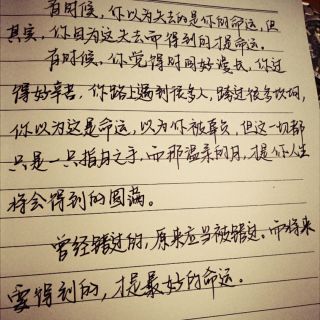 有时候，你以为失去的是你的命运，但
其实，你因为这失去而得到的才是命运。
有时候，你觉得时间好漫长，你过
得好辛苦，你路上遇到很多人，跨过很多坎坷，
你以为这是命运，以为你被辜负，但这一切都
只是一只指月之手，而那温柔的月，才是你人生
将会得到的圆满。
曾经错过的，原来应当被错过。而将来
要得到的，才是最妙的命运。